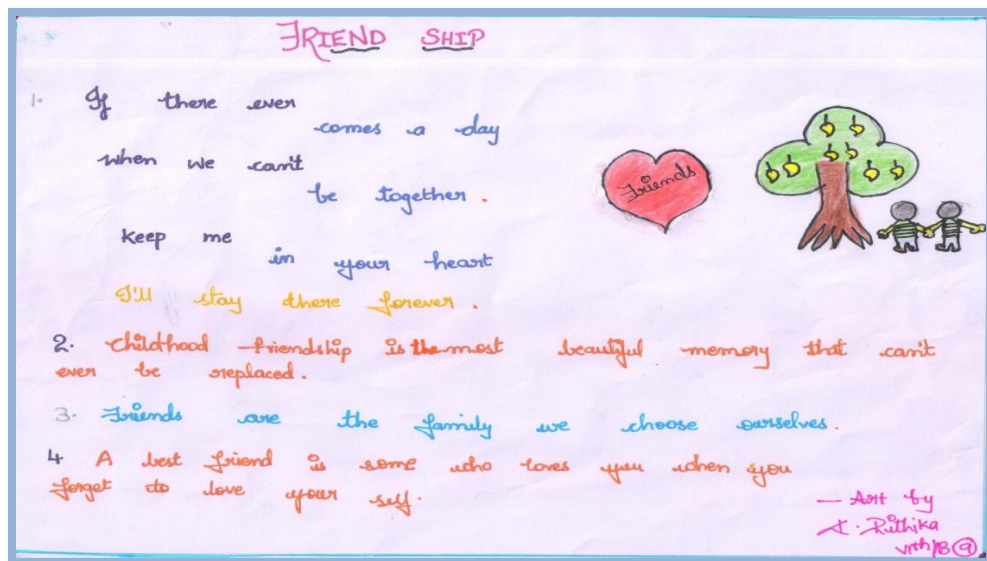 FRIEND SHIP
1. If there ever
comes a day
when we can't
be together.
keep me
in your heart
I'll stay there forever.
Friends
2. childhood friendship is the most beautiful memory that can't
ever be replaced.
3. Friends are the family we choose ourselves.
4. A best friend is some who loves you when you
forget to love your self.
— Art by
Ruthika